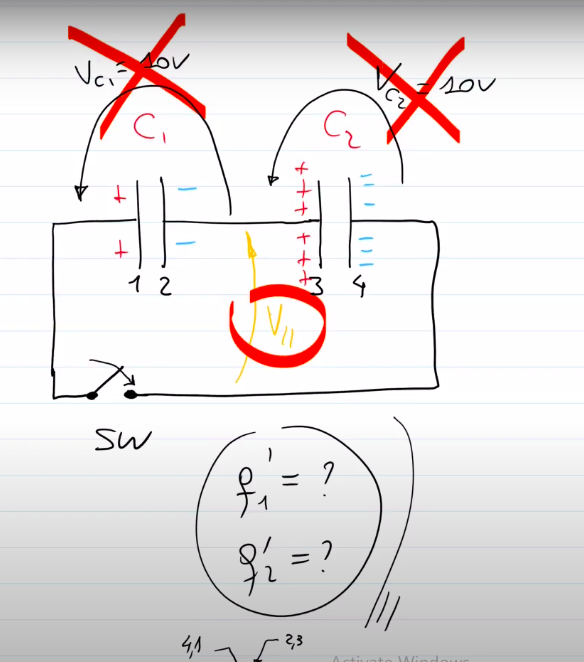 V_C1 = 10V
V_C2 = 10V
C1
C2
+ −
+ −
+ + + + + +
− − − − − −
1 2
3 4
V//
SW
q'1 = ?
q'2 = ?
4,1 2,3
Activate Windows